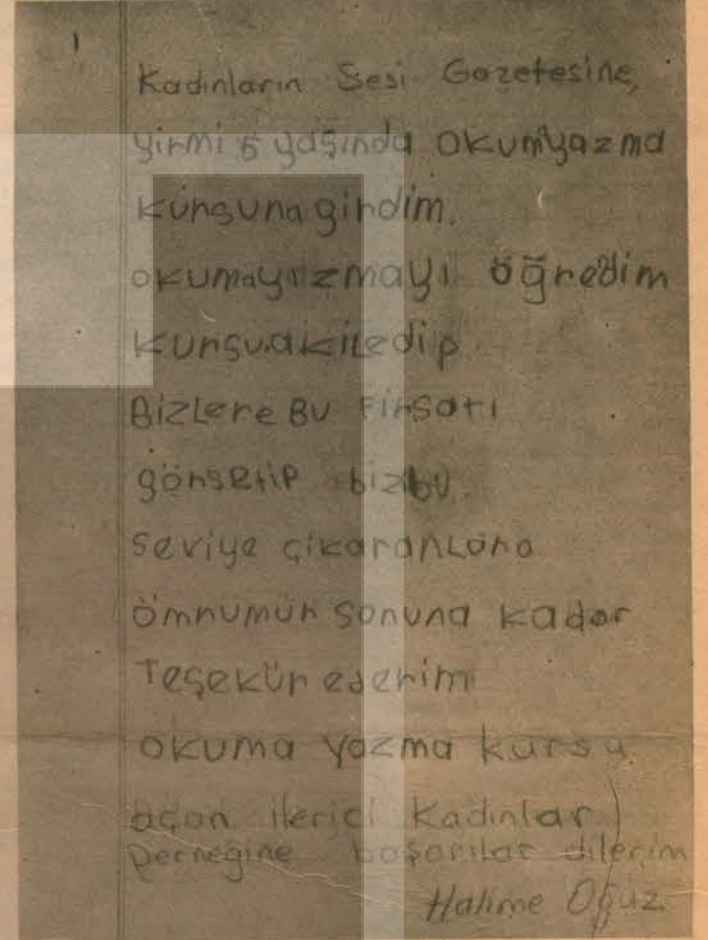 Kadınların Sesi Gazetesine,
yirmi 6 yaşında okumyazma
kursuna girdim.
okumayızmayı öğredim
kursuakiledip
Bizlere Bu Fırsatı
görsetip bizbu
seviye çikaranLara
ömrümün sonuna kadar
Teşekür ederim
okuma yazma kursu
açan ilerici Kadınlar
Derneğine başarılar dilerim
Halime Oğuz